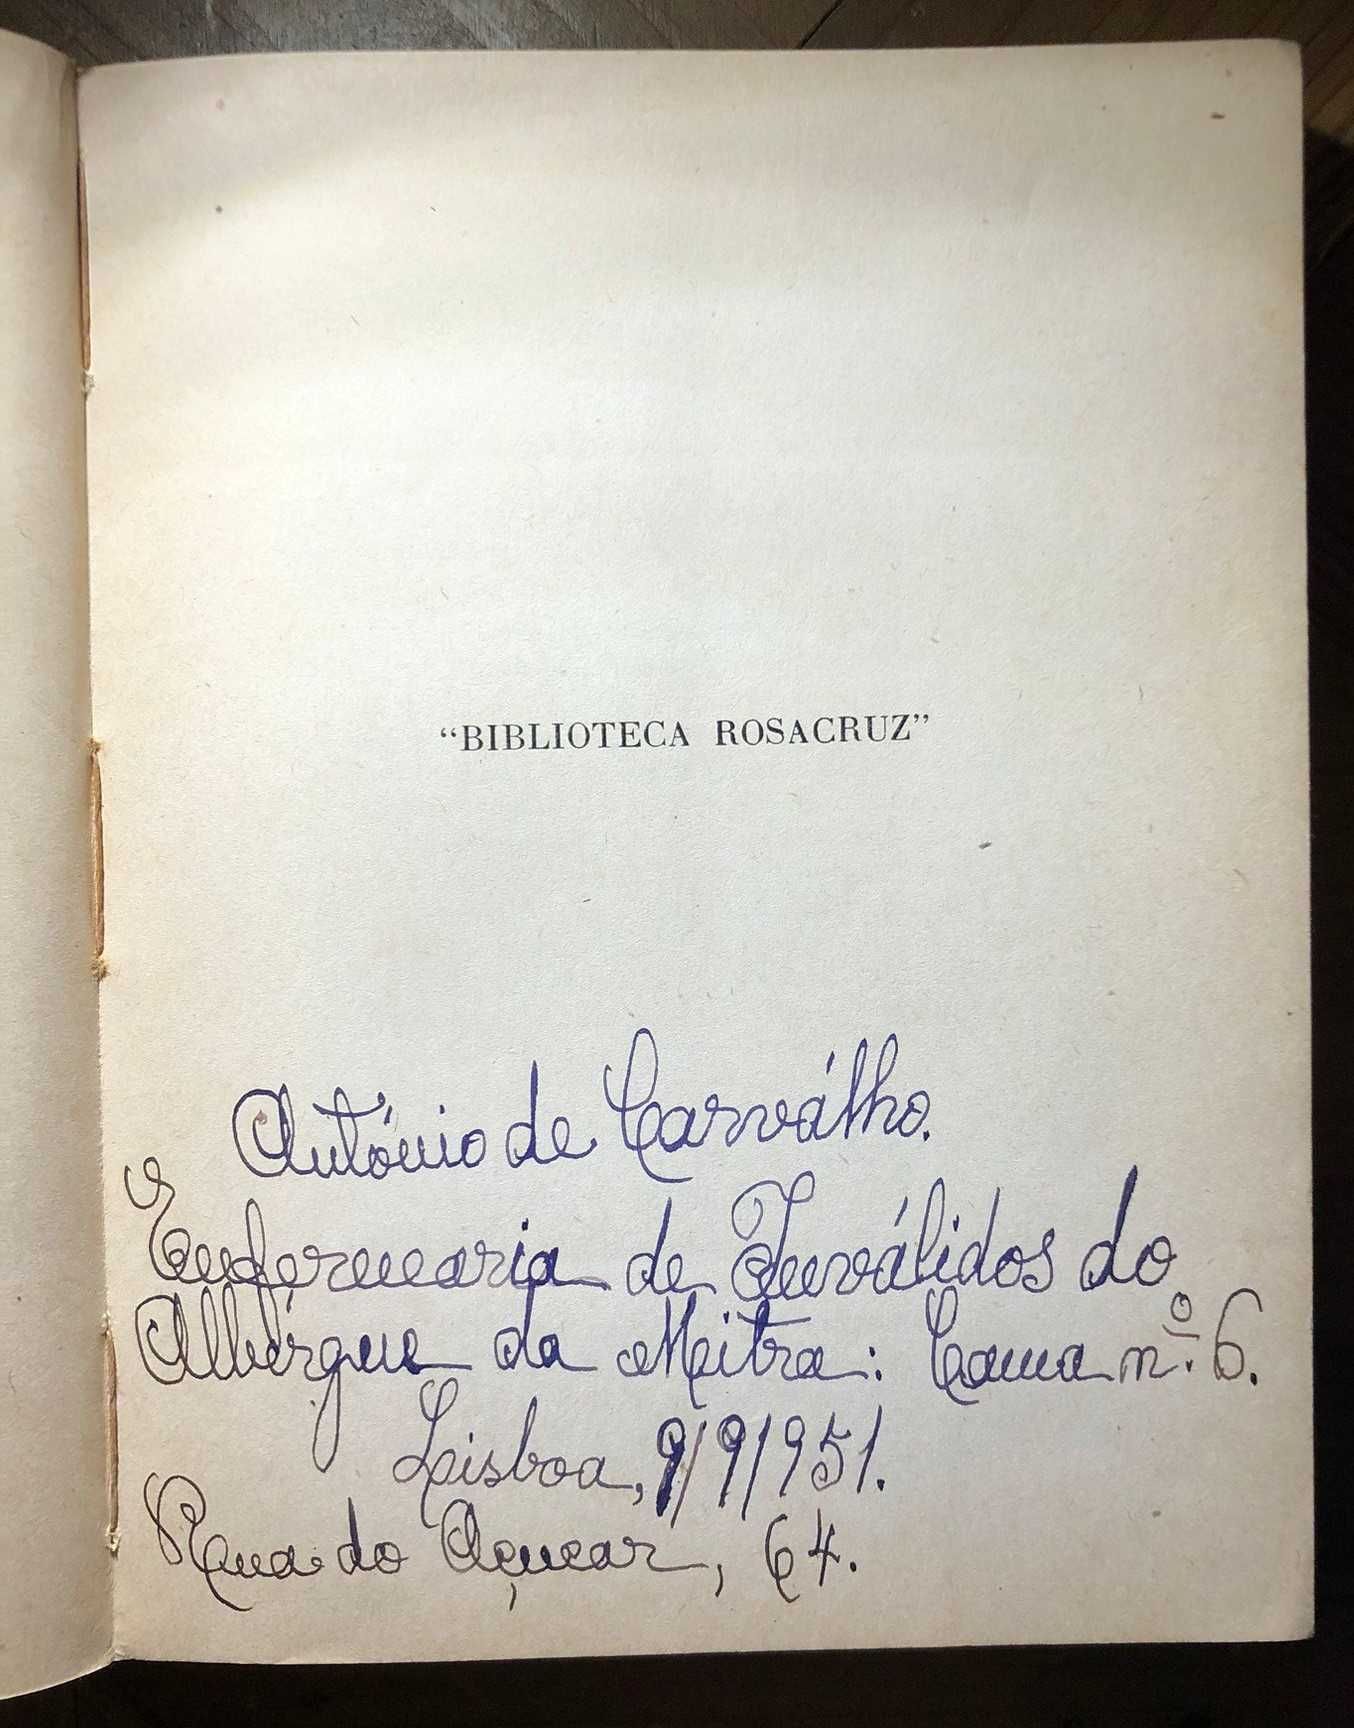 “BIBLIOTECA ROSACRUZ”
António de Carválho.
Enfermaria de Inválidos do
Albérgue da Mitra: Cama nº. 6.
Lisboa, 9/9/951.
Rua do Açucar, 64.